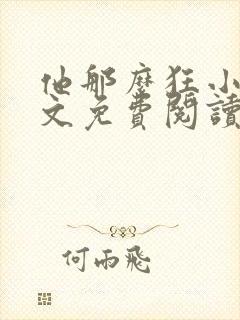 他那麼狂小
文免費閱讀
何雨飛